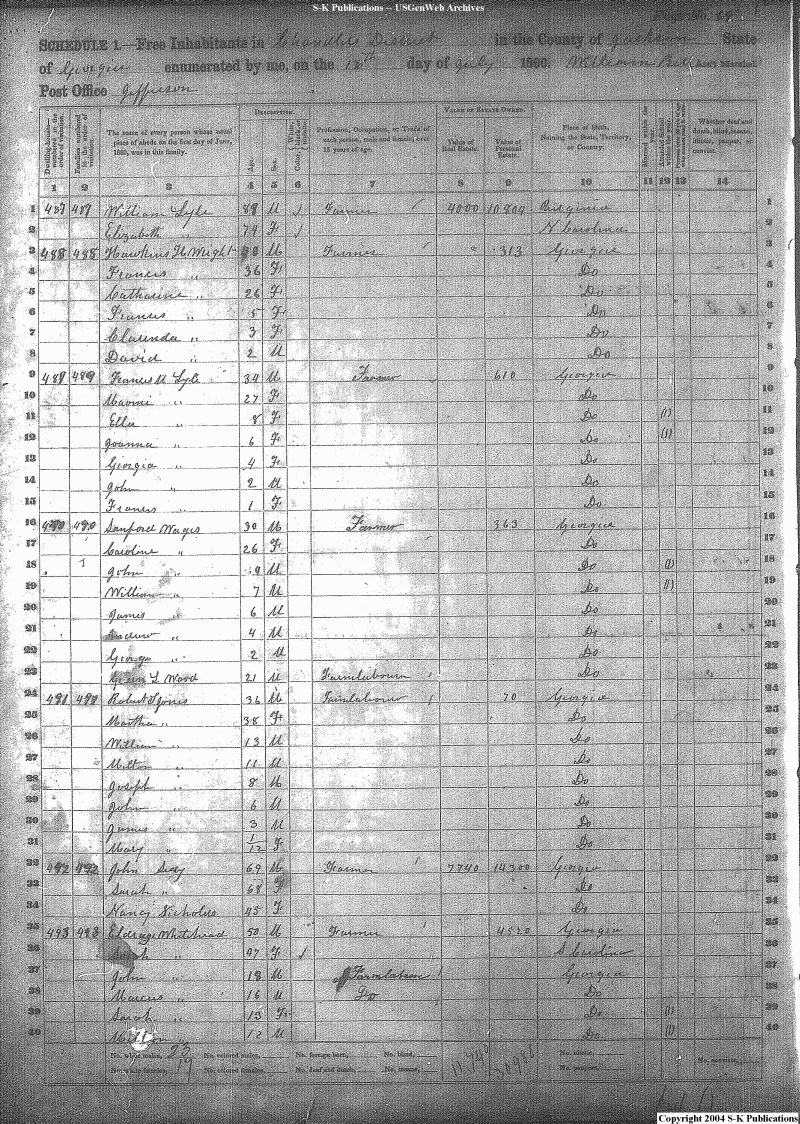 S-K Publications -- USGenWeb Archives
Page No. 64
SCHEDULE 1.—Free Inhabitants in Chandlers District in the County of Jackson State
of Georgia enumerated by me, on the 12th day of July 1860. William Bell Ass't Marshal.
Post Office Jefferson
Dwelling-houses numbered in the order of visitation. Families numbered in the order of visitation. The name of every person whose usual place of abode on the first day of June, 1860, was in this family. DESCRIPTION. Age. Sex. Color, White, black, or mulatto. Profession, Occupation, or Trade of each person, male and female, over 15 years of age. VALUE OF ESTATE OWNED. Value of Real Estate. Value of Personal Estate. Place of Birth, Naming the State, Territory, or Country. Married within the year. Attended School within the year. Whether deaf and dumb, blind, insane, idiotic, pauper, or convict.
1 2 3 4 5 6 7 8 9 10 11 12 13 14
1 487 487 William Lyle 89 M Farmer 4000 10804 Virginia 1
2 Elizabeth 74 F N Carolina 2
3 488 488 Hawkins H Wright M Farmer 313 Georgia 3
4 Frances " 36 F Do 4
5 Catharine " 26 F Do 5
6 Frances " 5 F Do 6
7 Clarinda " 3 F Do 7
8 David " 2 M Do 8
9 489 489 Francis M Lyle 34 M Farmer 610 Georgia 9
10 Naomi " 27 F Do 10
11 Ella " 8 F Do (1) 11
12 Joanna " 6 F Do (1) 12
13 Georgia " 4 F Do 13
14 John " 2 M Do 14
15 Frances " 1 F Do 15
16 490 490 Sanford Wages 30 M Farmer 363 Georgia 16
17 Caroline " 26 F Do 17
18 John " 9 M Do (1) 18
19 William " 7 M Do (1) 19
20 James " 6 M Do 20
21 Andrew " 4 M Do 21
22 George " 2 M Do 22
23 Green L Wood 21 M Farmlabourer Do 23
24 491 491 Robert S Jones 36 M Farmlabourer 70 Georgia 24
25 Martha " 38 F Do 25
26 William " 13 M Do 26
27 Milton " 11 M Do 27
28 Joseph " 8 M Do 28
29 John " 6 M Do 29
30 James " 3 M Do 30
31 Mary " 1/12 F Do 31
32 492 492 John 69 M Farmer 7740 14300 Georgia 32
33 Sarah " 68 F Do 33
34 Nancy Nicholas 45 F Do 34
35 493 493 Eldridge Whitehead 50 M Farmer 4520 Georgia 35
36 " 47 F S Carolina 36
37 John " 18 M Farmlabourer Georgia 37
38 Marcus " 16 M Do Do 38
39 Sarah " 13 F Do (1) 39
40 12 M Do (1) 40
No. white males, 23 No. colored males, No. foreign born, No. blind, 11,740 30,980 No. idiotic, No. convicts,
No. white females, 17 No. colored females, No. deaf and dumb, No. insane, No. paupers,
Copyright 2004 S-K Publications